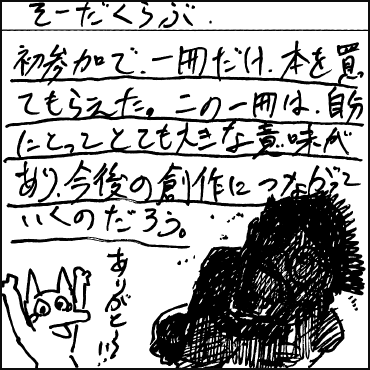 そーだくらぶ.
初参加で、一冊だけ、本を買っ
てもらえた。この一冊は、自分
にとってとても大きな意味が
あり、今後の創作につながって
いくのだろう。
ありがとう!!